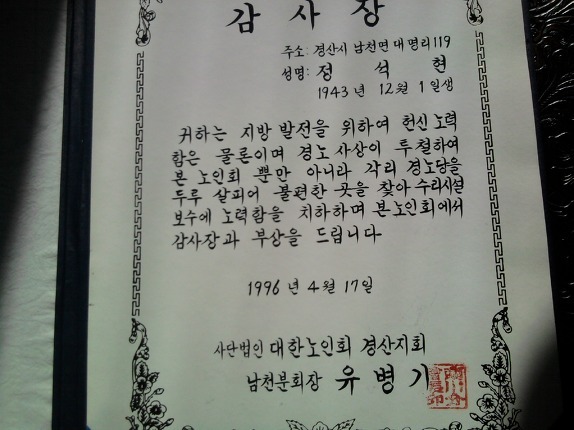 감 사 장
주소: 경산시 남천면 대명리119
성명: 정 석 현
1943년 12월 1일생
귀하는 지방 발전을 위하여 헌신 노력
함은 물론이며 경노사상이 투철하여
본 노인회 뿐만 아니라 각리 경노당을
두루 살피어 불편한 곳을 찾아 수리시설
보수에 노력함을 치하하며 본노인회에서
감사장과 부상을 드립니다
1996년 4월 17일
사단법인 대한노인회 경산지회
남천분회장 유병기